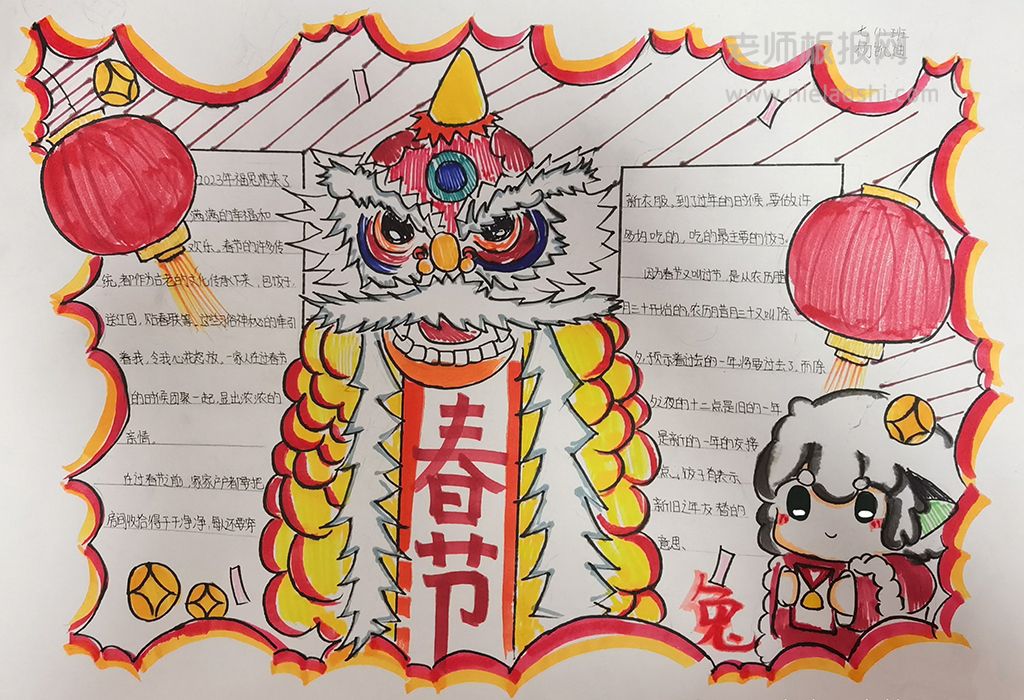 老师板报网
www.nielaoshi.com
2023年福兔带来了
满满的幸福和
欢乐、春节的许多传
统，都作为古老的文化传承下来，包饺子，
送红包，贴春联等，这些习俗神秘的牵引
着我，令我心花怒放，一家人在过春节
的时候团聚一起，显出浓浓的
亲情。
在过春节前，家家户户都要把
房间收拾得干干净净，每人还要穿
新衣服，到了过年的时候，要做许
多好吃的，吃的最主要的饺子。
因为春节又叫过节，是从农历腊
月三十开始的，农历腊月三十又叫"除
夕"，预示着过去的一年将要过去了，而除
夕之夜的十二点是旧的一年
是新的一年的交接
点。，饺子有表示
新旧之年交替的
意思、
春节
兔